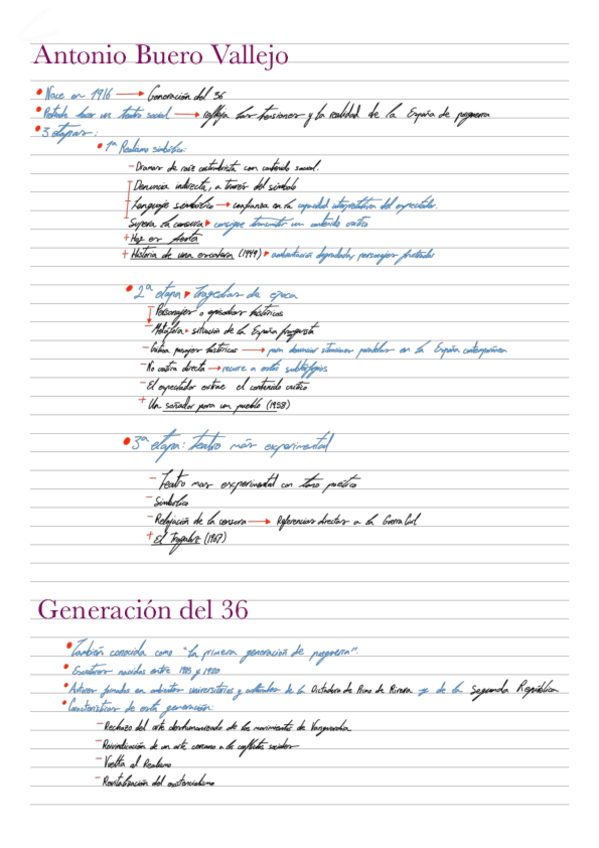 Antonio Buero Vallejo
• Nace en 1916 → Generación del 36
• Pretende hacer un teatro social → refleja las tensiones y la realidad de la España de posguerra
• 3 etapas:
• 1ª Realismo simbólico:
- Dramas de raíz costumbrista con contenido social.
Denuncia indirecta, a través del símbolo
- Lenguaje simbólico → confianza en la capacidad interpretativa del espectador.
Supera la censura → consigue transmitir un contenido crítico
+ Hoy es fiesta
+ Historia de una escalera (1949) → ambientación degradada, personajes frustrados
• 2ª etapa → tragedias de época
Personajes o episodios históricos
- Metáfora → situación de la España franquista
- Utiliza pasajes históricos → para denunciar situaciones paralelas en la España contemporánea
- No critica directa → recurre a estos subterfugios
- El espectador extrae el contenido crítico
+ Un soñador para un pueblo (1958)
• 3ª etapa: teatro más experimental
- Teatro mas experimental con tono poético
- Simbólico
- Relajación de la censura → Referencias directas a la Guerra Civil
+ El Tragaluz (1967)
Generación del 36
• También conocida como "la primera generación de posguerra".
• Escritores nacidos entre 1905 y 1920
• Autores formados en ambientes universitarios y culturales de la Dictadura de Primo de Rivera y de la Segunda República
• Características de esta generación:
- Rechazo del arte deshumanizado de los movimientos de Vanguardia
- Reivindicación de un arte cercano a los conflictos sociales
- Vuelta al Realismo
- Revitalización del existencialismo